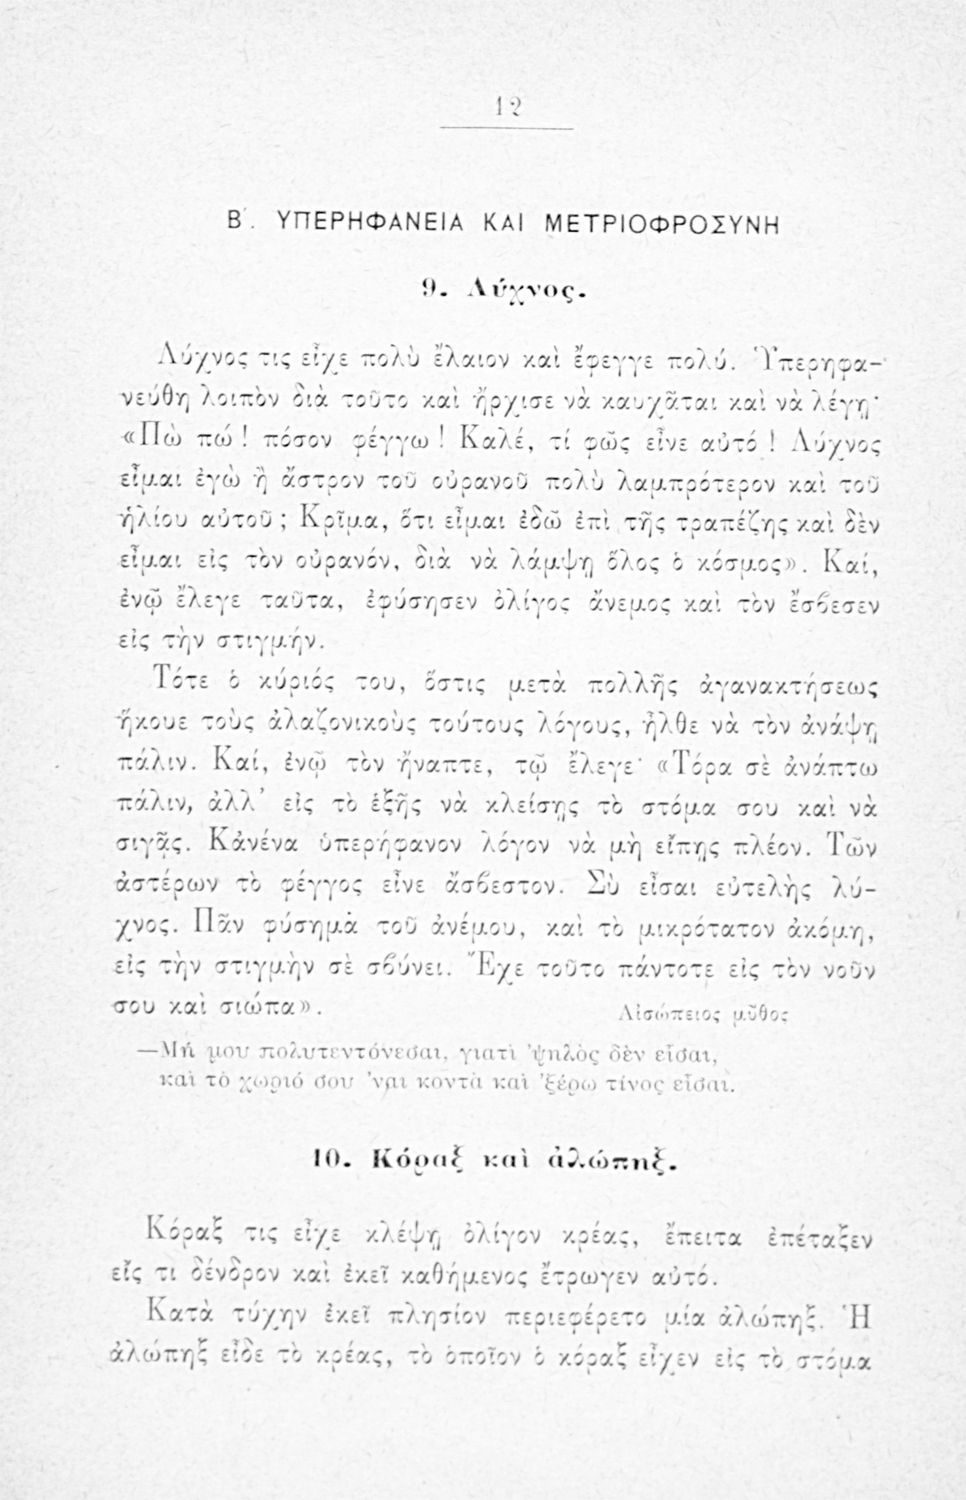 12
Β΄. ΥΠΕΡΗΦΑΝΕΙΑ ΚΑΙ ΜΕΤΡΙΟΦΡΟΣΥΝΗ
9. Λύχνος.
Λύχνος τις εἶχε πολὺ ἔλαιον καὶ ἔφεγγε πολύ. Ὑπερηφα-
νεύθη λοιπὸν διὰ τοῦτο καὶ ἤρχισε νὰ καυχᾶται καὶ νὰ λέγῃ·
«Πὼ πώ! πόσον φέγγω! Καλέ, τί φῶς εἶνε αὐτό! Λύχνος
εἶμαι ἐγὼ ἢ ἄστρον τοῦ οὐρανοῦ πολὺ λαμπρότερον καὶ τοῦ
ἡλίου αὐτοῦ; Κρῖμα, ὅτι εἶμαι ἐδῶ ἐπὶ τῆς τραπέζης καὶ δὲν
εἶμαι εἰς τὸν οὐρανόν, διὰ νὰ λάμψῃ ὅλος ὁ κόσμος». Καί,
ἐνῷ ἔλεγε ταῦτα, ἐφύσησεν ὀλίγος ἄνεμος καὶ τὸν ἔσβεσεν
εἰς τὴν στιγμήν.
Τότε ὁ κύριός του, ὅστις μετὰ πολλῆς ἀγανακτήσεως
ἤκουε τοὺς ἀλαζονικοὺς τούτους λόγους, ἦλθε νὰ τὸν ἀνάψῃ
πάλιν. Καί, ἐνῷ τὸν ἤναπτε, τῷ ἔλεγε· «Τόρα σὲ ἀνάπτω
πάλιν, ἀλλ' εἰς τὸ ἑξῆς νὰ κλείσῃς τὸ στόμα σου καὶ νὰ
σιγᾷς. Κἀνένα ὑπερήφανον λόγον νὰ μὴ εἴπῃς πλέον. Τῶν
ἀστέρων τὸ φέγγος εἶνε ἄσβεστον. Σὺ εἶσαι εὐτελὴς λύ-
χνος. Πᾶν φύσημα τοῦ ἀνέμου, καὶ τὸ μικρότατον ἀκόμη,
εἰς τὴν στιγμὴν σὲ σβύνει. Ἔχε τοῦτο πάντοτε εἰς τὸν νοῦν
σου καὶ σιώπα».
Αἰσώπειος μῦθος
—Μή μου πολυτεντόνεσαι, γιατὶ 'ψηλὸς δὲν εἶσαι,
καὶ τὸ χωριό σου 'ναι κοντὰ καὶ 'ξέρω τίνος εἶσαι.
10. Κόραξ καὶ ἀλώπηξ.
Κόραξ τις εἶχε κλέψῃ ὀλίγον κρέας, ἔπειτα ἐπέταξεν
εἴς τι δένδρον καὶ ἐκεῖ καθήμενος ἔτρωγεν αὐτό.
Κατὰ τύχην ἐκεῖ πλησίον περιεφέρετο μία ἀλώπηξ. Ἡ
ἀλώπηξ εἶδε τὸ κρέας, τὸ ὁποῖον ὁ κόραξ εἶχεν εἰς τὸ στόμα